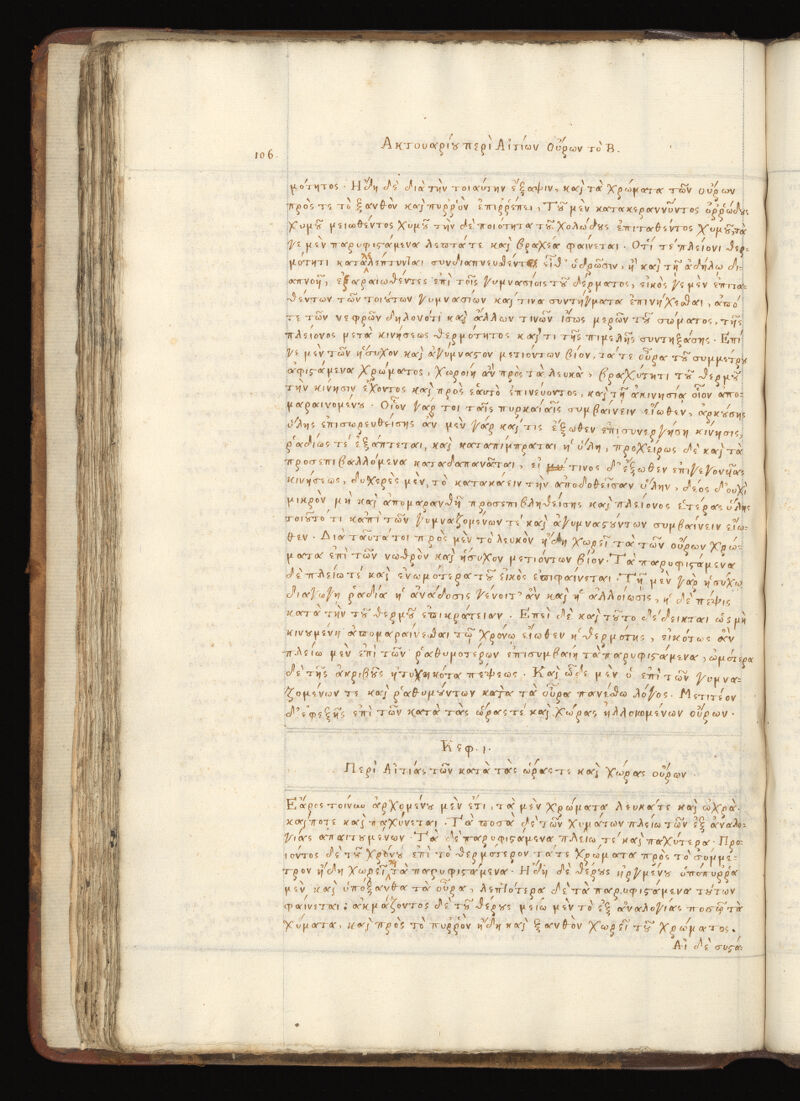 Ακτουαρίου περὶ Αἰτίων Οὔρων τὸ Β.
106.
μότητος. Ἤδη δὲ διὰ τὴν τοιαύτην ἔξαψιν, καὶ τὰ χρώματα τῶν οὔρων
πρός τε τὸ ξανθὸν καὶ πυρρὸν ἐπιρρέπει, Τοῦ μὲν κατακεραννύντος ὀρρώδους
χυμοῦ μειωθέντος χυμοῦ τὴν δὲ ποιότητα τοῦ χολώδους ἐπιταθέντος χυμοῦ, τά
γε μὲν παρυφιστάμενα λεπτά τε καὶ βραχέα φαίνεται. Ὅτί τε πλείονι θερ-
μότητι καταλεπτυνται συνδιαπνευθέντες εἴθ' ἱδρῶσιν, ἢ καὶ τῇ ἀδήλῳ δι-
απνοῇ, ἐξαραιωθέντες ἐπὶ τοῖς γυμνασίοις τοῦ δέρματος, εἰκός γε μὲν ἐπιτα-
θέντων τῶν τοιούτων γυμνασίων καί τινα συντήγματα ἐπινήχεσθαι, ἀπό
τε τῶν νεφρῶν δηλονότι καὶ ἄλλων τινῶν ἴσως μερῶν τοῦ σώματος, τῆς
πλείονος μετὰ κινήσεως θερμότητος καί τι τῆς πιμελῆς συντηξάσης. Ἐπί
γε μὲν τῶν ἥσυχον καὶ ἀγύμναστον μετιόντων βίον, τά τε οὖρα τοῦ συμμέτρου
ἀφιστάμενα χρώματος, χωροίη ἂν πρὸς τὰ λευκά, βραχύτητι τοῦ θερμοῦ
τὴν κίνησιν ἔχοντος καὶ πρὸς ἑαυτὸ ἐπινεύοντος, καὶ τῇ ἀκινησίᾳ οἷον ἀπο-
μαραινομένου. Οἷον γάρ τοι ταῖς πυρκαϊαῖς συμβαίνειν εἴωθεν, ἀρκούσης
ὕλης ἐπισωρευθείσης ἂν μὲν γὰρ καί τις ἔξωθεν ἐπισυνεργήσῃ κίνησις,
ῥᾳδίως τέ ἐξάπτεται, καὶ καταπίμπραται ἡ ὕλη, προχείρως δὲ καὶ τὰ
προσεπιβαλλόμενα καταδαπανᾶται, εἰ τινος δ' ἔξωθεν ἐπιγεγονυίας
κινήσεως, δυχερὲς μὲν, τὸ κατακαίειν τὴν ἀποδοθεῖσαν ὕλην, δέος δ' οὐχὶ
μικρὸν μὴ καὶ ἀπομαρανθῇ προσεπιβληθείσης καὶ πλείονος ἑτέρας ὕλης
τοιοῦτό τι κἀπὶ τῶν γυμναζομένων τε καὶ ἀγυμναστούντων συμβαίνειν εἴω-
θεν. Διὰ ταῦτά τοι πρὸς μὲν τὸ λευκὸν ἤδη χωρεῖ τὰ τῶν οὔρων χρώ-
ματα ἐπὶ τῶν νωθρὸν καὶ ἥσυχον μετιόντων βίον. Τὰ παρυφιστάμενα
δὲ πλείω τέ καὶ ἐνωμότερα τοῦ εἰκὸς ἐπιφαίνεται. Τῇ μὲν γὰρ ἡσύχῳ
διαγωγῇ ῥᾳδία ἡ ἀνάδοσις γένοιτ' ἂν καὶ ἡ ἀλλοίωσις, ἡ δὲ πέψις
κατὰ τὴν τοῦ θερμοῦ ἐπικράτειαν. Ἐπεὶ δὲ καὶ τοῦτο δέδεικται ὡς μὴ
κινουμένη ἀπομαραίνεσθαι τῷ χρόνῳ εἴωθεν ἡ θερμότης, εἰκότως ἂν
πλείω μὲν ἐπὶ τῶν ῥαθυμοτέρων ἐπισυμβαίη τὰ παρυφιστάμενα, ὠμότερα
δὲ τῆς ἀκριβοῦς ἠτυχηκότα πέψεως. Καὶ ὧδε μὲν ὁ ἐπὶ τῶν γυμνα-
ζομένων τε καὶ ῥαθυμούντων κατὰ τὰ οὖρα πανέσθω λόγος. Μετιτέον
δ' ἐφεξῆς ἐπὶ τῶν κατὰ τὰς ὥρας τέ καὶ χώρας ἠλλοιωμένων οὔρων.
Κεφ. ι.
Περὶ Αἰτίας τῶν κατὰ τὰς ὥρας τε καὶ χώρας οὔρων.
Ἔαρος τοίνυν ἀρχομένου μὲν ἔτι, τὰ μὲν χρώματα λευκά τε καὶ ὠχρά.
καί ποτε καὶ παχύνεται. Τὰ ποσὰ δὲ τῶν χυμάτων πλείω τῶν ἐξ ἀναλο-
γίας ἀπαιτουμένων. Τὰ δὲ παρυφιστάμενα πλείω τέ καὶ παχύτερα. Προ-
ϊόντος δὲ τοῦ χρόνου ἐπὶ τὸ θερμότερον τά τε χρώματα πρὸς τὸ σύμμε-
τρον ἤδη χωρεῖ τὰ παρυφιστάμενα. Ἤδη δὲ θέρους ἠργμένου ὑπόπυρρα
μὲν καὶ ὑπόξανθα τὰ οὖρα, λεπτότερα δὲ τὰ παρυφιστάμενα τούτων
φαίνεται; ἀκμάζοντος δὲ τοῦ θέρους μείω μὲν τὸ ἐξ ἀναλογίας ποσῷ τὰ
χύματα, καὶ πρὸς τὸ πυρρὸν ἤδη καὶ ξανθὸν χωρεῖ τοῦ χρώματος.
Αἱ δὲ συστά